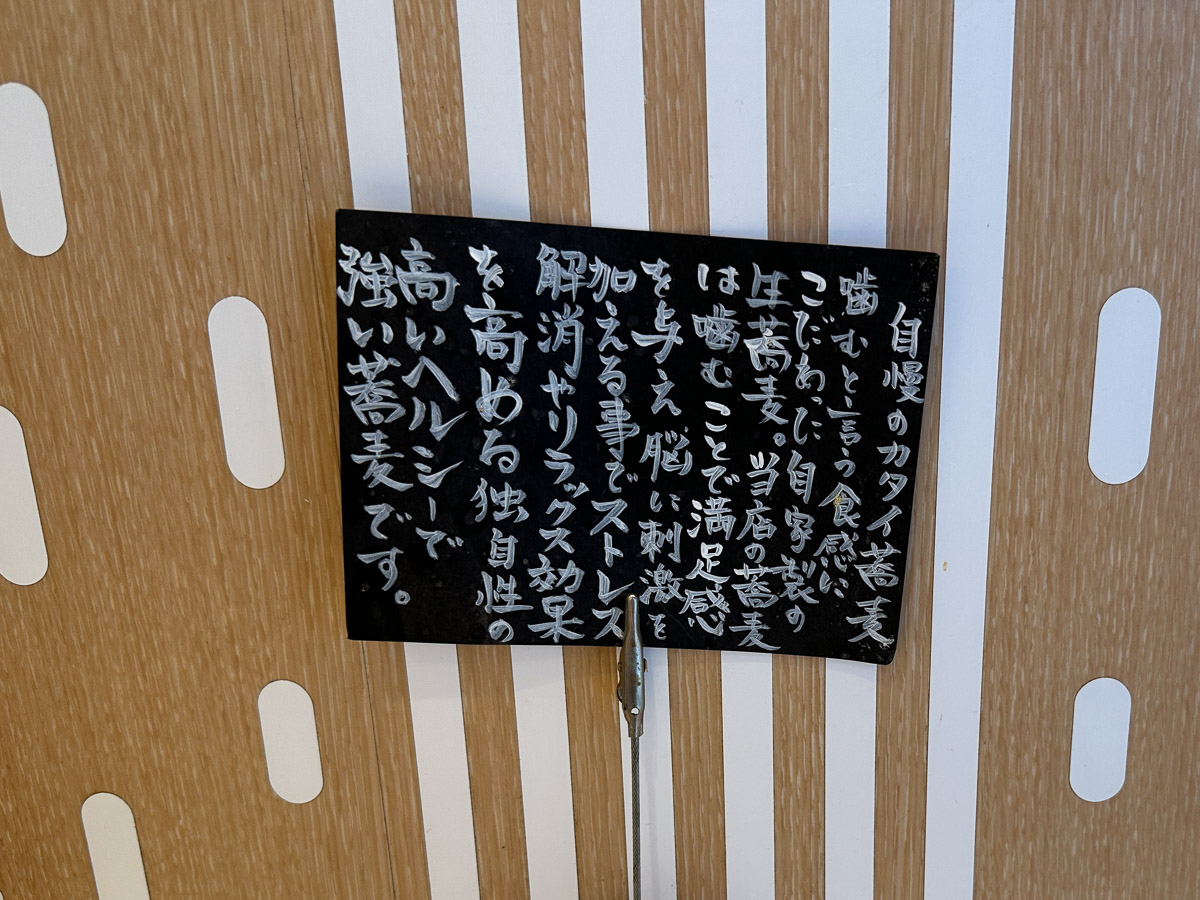 自慢のカタイ蕎麦
噛むと言う食感に
こだわった自家製の
生蕎麦。当店の蕎麦
は噛むことで満足感
を与え脳に刺激を
加える事でストレス
解消やリラックス効果
を高める独自性の
高いヘルシーで
強い蕎麦です。